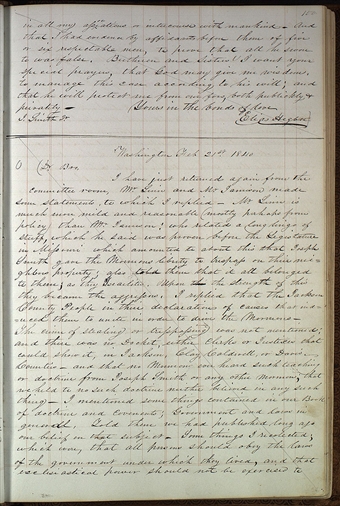 in all my opperations or intercourse with mankind - And
that I had evidence by affidavits before them of five
or six respectable men, to prove that all he swore
to was false. Brethren and Sisters! I want your
special prayers, that God may give me wisdom,
to manage this case according to his will; and
that he will protect me from our foes, both publickly &
privately —
Yours in the bonds of love
J. Smith Jr.
Elias Higbee
Washington Feb. 21st 1840
Dr Bro.
I have just returned again from the
committee room, Mr. Linn and Mr Jamison made
some statements, to which I replied — Mr Linn is
much more mild and reasonable (mostly perhaps from
policy) than Mr. Jamison; who related a long lingo of
stuff, which he said was proven before the Legislature
in Missouri which amounted to about this that Joseph
Smith gave the Mormons liberty to trespass on their nei-
ghbors property; also told them that it all belonged
to them; as they Israelites. Upon the strength of this
they became the aggressors. I replied that the Jackson
County People in their declaration of causes that
them to unite in order to drive the Mormons —
The crime of stealing or trespassing was not mentioned;
and there was no Docket, either Clerks or Justices that
could shew it, in Jackson, Clay, Caldwell, or Davis
Counties — and that no Mormon ever heard such teaching
or doctrine from Joseph Smith or any other mormon; that
we held to no such doctrine neither believed in any such
thing — I mentioned some things contained in our Book
of doctrine and covenants; Government and Laws in
general. Told them we had published long ago
our belief on that subject — Some things I recollected,
which were, that all persons should obey the laws
of the government under which they lived, and that
ecclesiastical power should not be exercised to